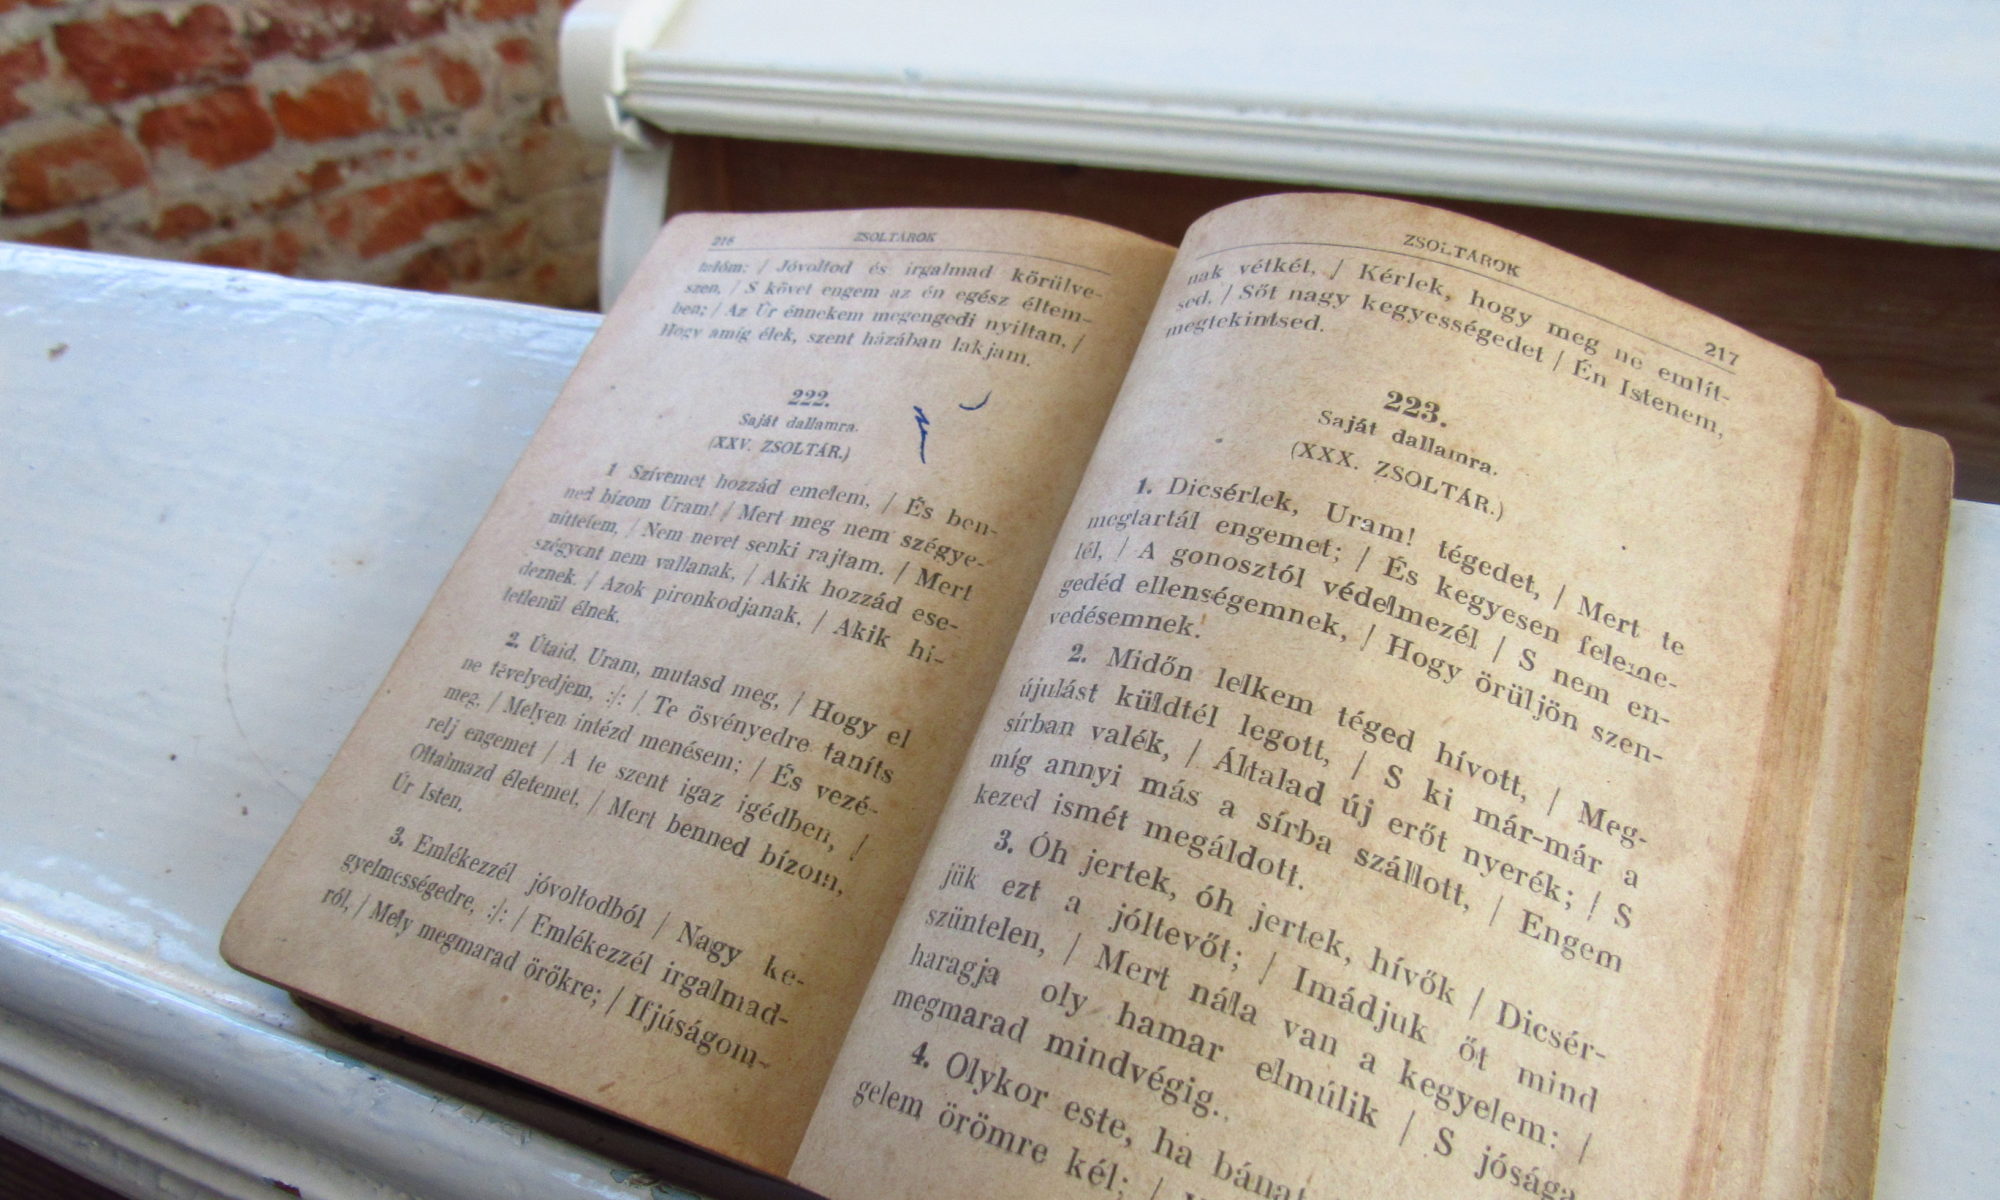 216 ZSOLTÁROK
talóm: / Jóvoltod és irgalmad körülve-
szen, / S követ engem az én egész éltem-
ben; / Az Úr énnekem megengedi nyiltan, /
Hogy amíg élek, szent házában lakjam.
222.
Saját dallamra.
(XXV. ZSOLTÁR.)
1 Szívemet hozzád emelem, / És ben-
ned bízom Uram! / Mert meg nem szégye-
níttetem, / Nem nevet senki rajtam. / Mert
szégyent nem vallanak, / Akik hozzád ese-
deznek. / Azok pironkodjanak, / Akik hi-
tetlenül élnek.
2. Útaid, Uram, mutasd meg, / Hogy el
ne tévelyedjem, :/: / Te ösvényedre taníts
meg, / Melyen intézd menésem; / És vezé-
relj engemet / A te szent igaz igédben, /
Oltalmazd életemet, / Mert benned bízom,
Úr Isten.
3. Emlékezzél jóvoltodból / Nagy ke-
gyelmességedre, :/: / Emlékezzél irgalmad-
ról, / Mely megmarad örökre; / Ifjúságom-
ZSOLTÁROK 217
nak vétkét, / Kérlek, hogy meg ne említ-
sed, / Sőt nagy kegyességedet / Én Istenem,
megtekintsed.
223.
Saját dallamra.
(XXX. ZSOLTÁR.)
1. Dicsérlek, Uram! tégedet, / Mert te
megtartál engemet; / És kegyesen feleme-
lél, / A gonosztól védelmezél / S nem en-
gedéd ellenségemnek, / Hogy örüljön szen-
vedésemnek.
2. Midőn lelkem téged hívott, / Meg-
újulást küldtél legott, / S ki már-már a
sírban valék, / Általad új erőt nyerék; / S
míg annyi más a sírba szállott, / Engem
kezed ismét megáldott.
3. Óh jertek, óh jertek, hívők / Dicsér-
jük ezt a jóltevőt; / Imádjuk őt mind
szüntelen, / Mert nála van a kegyelem: /
haragja oly hamar elmúlik / S jósága
megmarad mindvégig.
4. Olykor este, ha bánat
gelem örömre kél; /